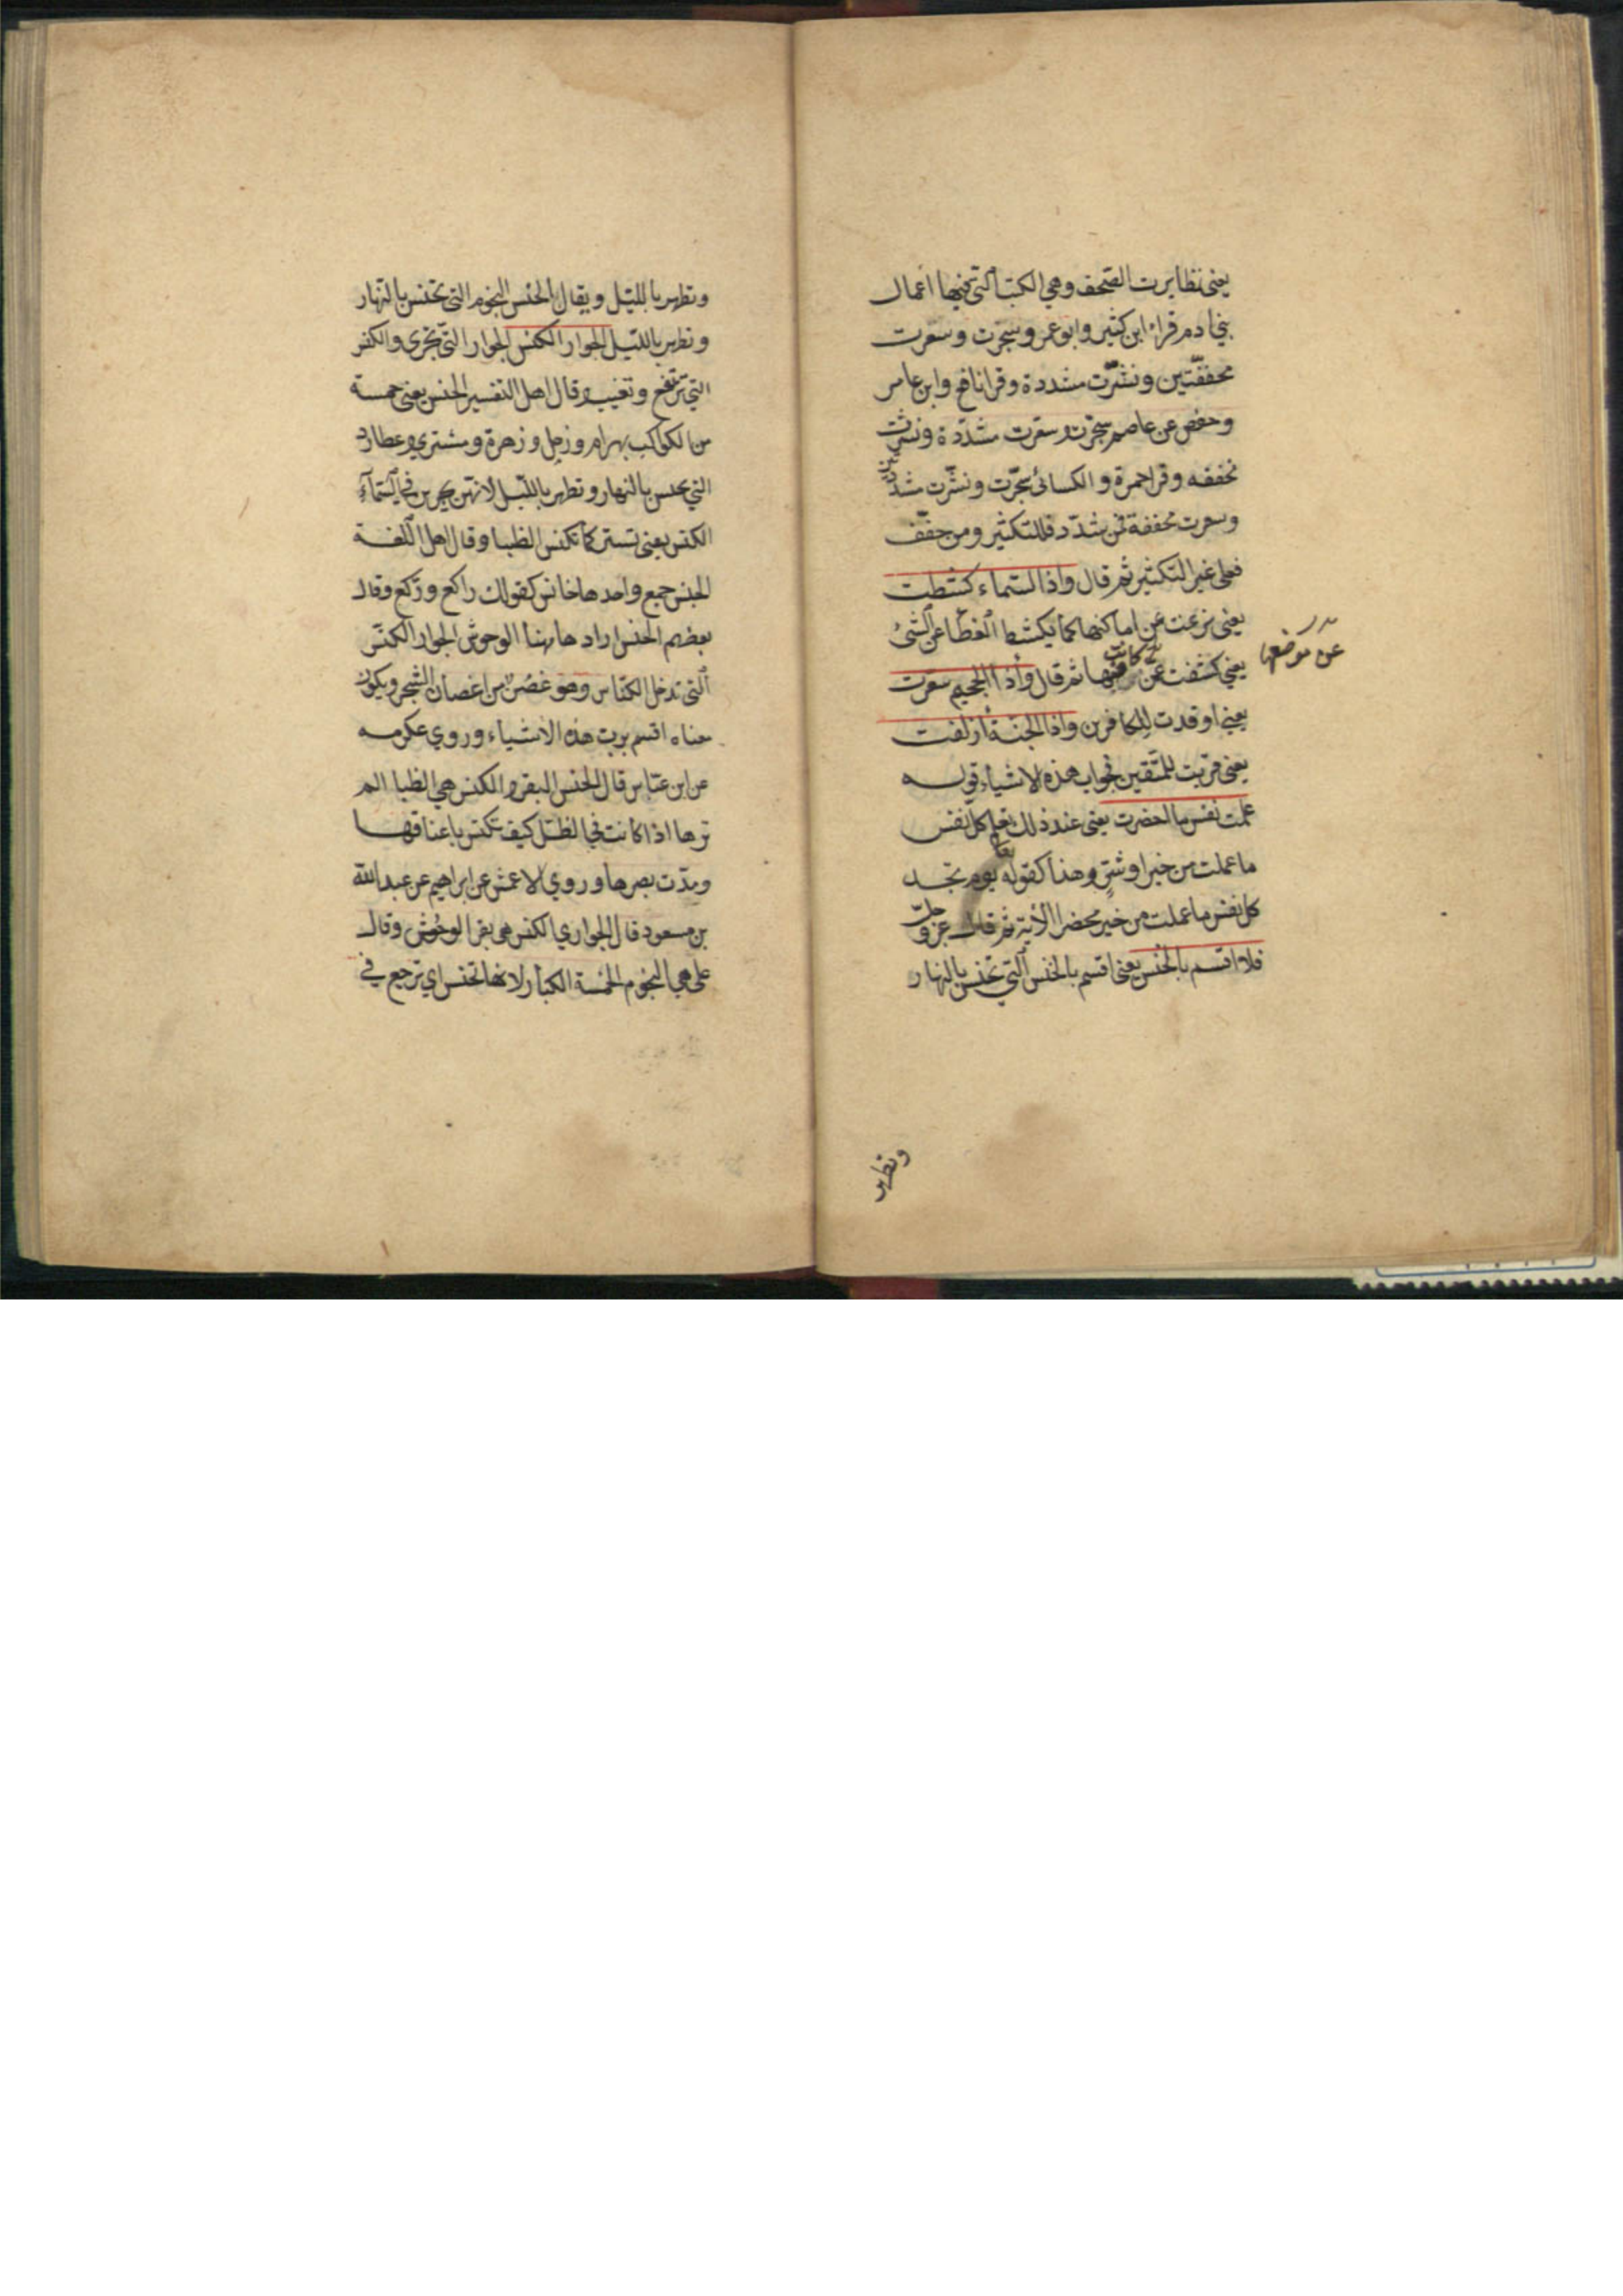 يعنى تطايرت الصحف وهي الكتب التي فيها اعمال
بنى ادم قراء ابن كثير وابو عمرو سجرت وسعرت
مخففتين ونشّرت مشددة وقرا نافع وابن عامر
وحفص عن عاصم سجّرت وسعّرت مشدّدة ونشرت
مخففه وقرا حمزة والكسائى سجّرت ونشّرت مشددتين
وسعرت مخففة فمن شدّد فللتكثير ومن خفّف
فعلى غير التكثير ثم قال واذا السماء كشطت
يعنى نزعت عن اماكنها كما يكشط الغطا عن الشئ
يعني كشفت عمن كانت فيها ثم قال واذا الجحيم سعرت
عن موضعها
يعني اوقدت للكافرين واذا الجنة ازلفت
يعنى قربت للمتّقين فجواب هذه الاشياء قوله
علمت نفس ما احضرت يعنى عند ذلك تعلم كل نفس
ما عملت من خير او شرّ وهذا كقوله تعا يوم تجد
كل نفس ما عملت من خير محضرا الأية ثم قال عزّ وجلّ
فلا اقسم بالخنس يعنى اقسم بالخنس التي تخنس بالنهار
وتظهر
وتظهر بالليّل ويقال الخنّس النجوم التى تخنس بالنهار
وتظهر بالليّل الجوار الكنّس الجوار التي تجرى والكنس
التي ترتفع وتغيب وقال اهل التفسير الخنس يعنى خمسة
من الكواكب بهرام وزحل وزهرة ومشتري وعطارد
التي تخنس بالنهار وتظهر بالليّل لانهن يجرين في السّمآء
الكنّس يعني تستتر كما تكنس الظبا وقال اهل اللّغة
الخنس جمع واحدها خانس كقولك راكع وركّع وقال
بعضهم الخنس اراد هاهنا الوحوش الجوار الكنّس
التى تدخل الكناس وهو غصن من اغصان الشجر ويكون
معناه اقسم بربّ هذه الاشياء وروي عكرمه
عن ابن عبّاس قال الخنس البقر والكنس هي الظبا الم
ترها اذا كانت في الظلّ كيف تكنس باعناقها
ومدّت بصرها وروي الاعمش عن ابراهيم عن عبد الله
بن مسعود قال الجواري الكنس هي بقر الوحوش وقال
على هي النجوم الخمسة الكبار لانها تخنس اي ترجع في